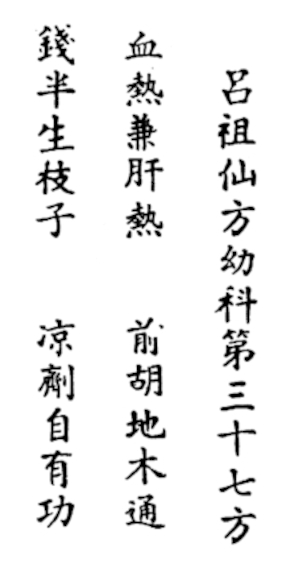 呂祖仙方幼科第三十七方
血熱兼肝熱　前胡地木通
錢半生枝子　凉劑自有功